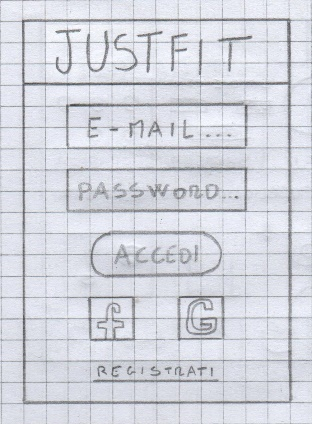 JUSTFIT
E-MAIL...
PASSWORD...
ACCEDI
f G
REGISTRATI